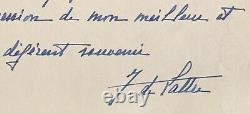 ression de mon meilleur et
déférent souvenir
J de Lattre